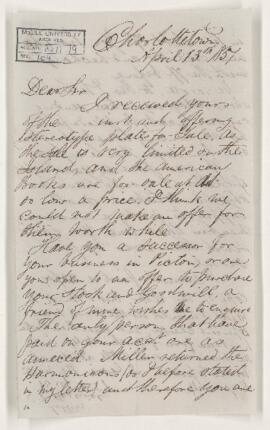 McGILL UNIVERSITY
ARCHIVES
Charlottetown
April 13th 1857
Dear Sir
I received yours
of the inst and offering
stereotype plates for sale, as
the sale is very limited on the
Island, and the American
books are for sale at
so low a price I think we
could not make an offer for
them worth while
Have you a successor for
your business in Pictou, or are
you open to an offer to purchase
your Stock and Goodwill, a
friend of mine wishes me to enquire
The only persons that have
paid on your acct are as
annexed. Miller returned the
Harmonicons (as I before stated
in my letter) and therefore you are
in